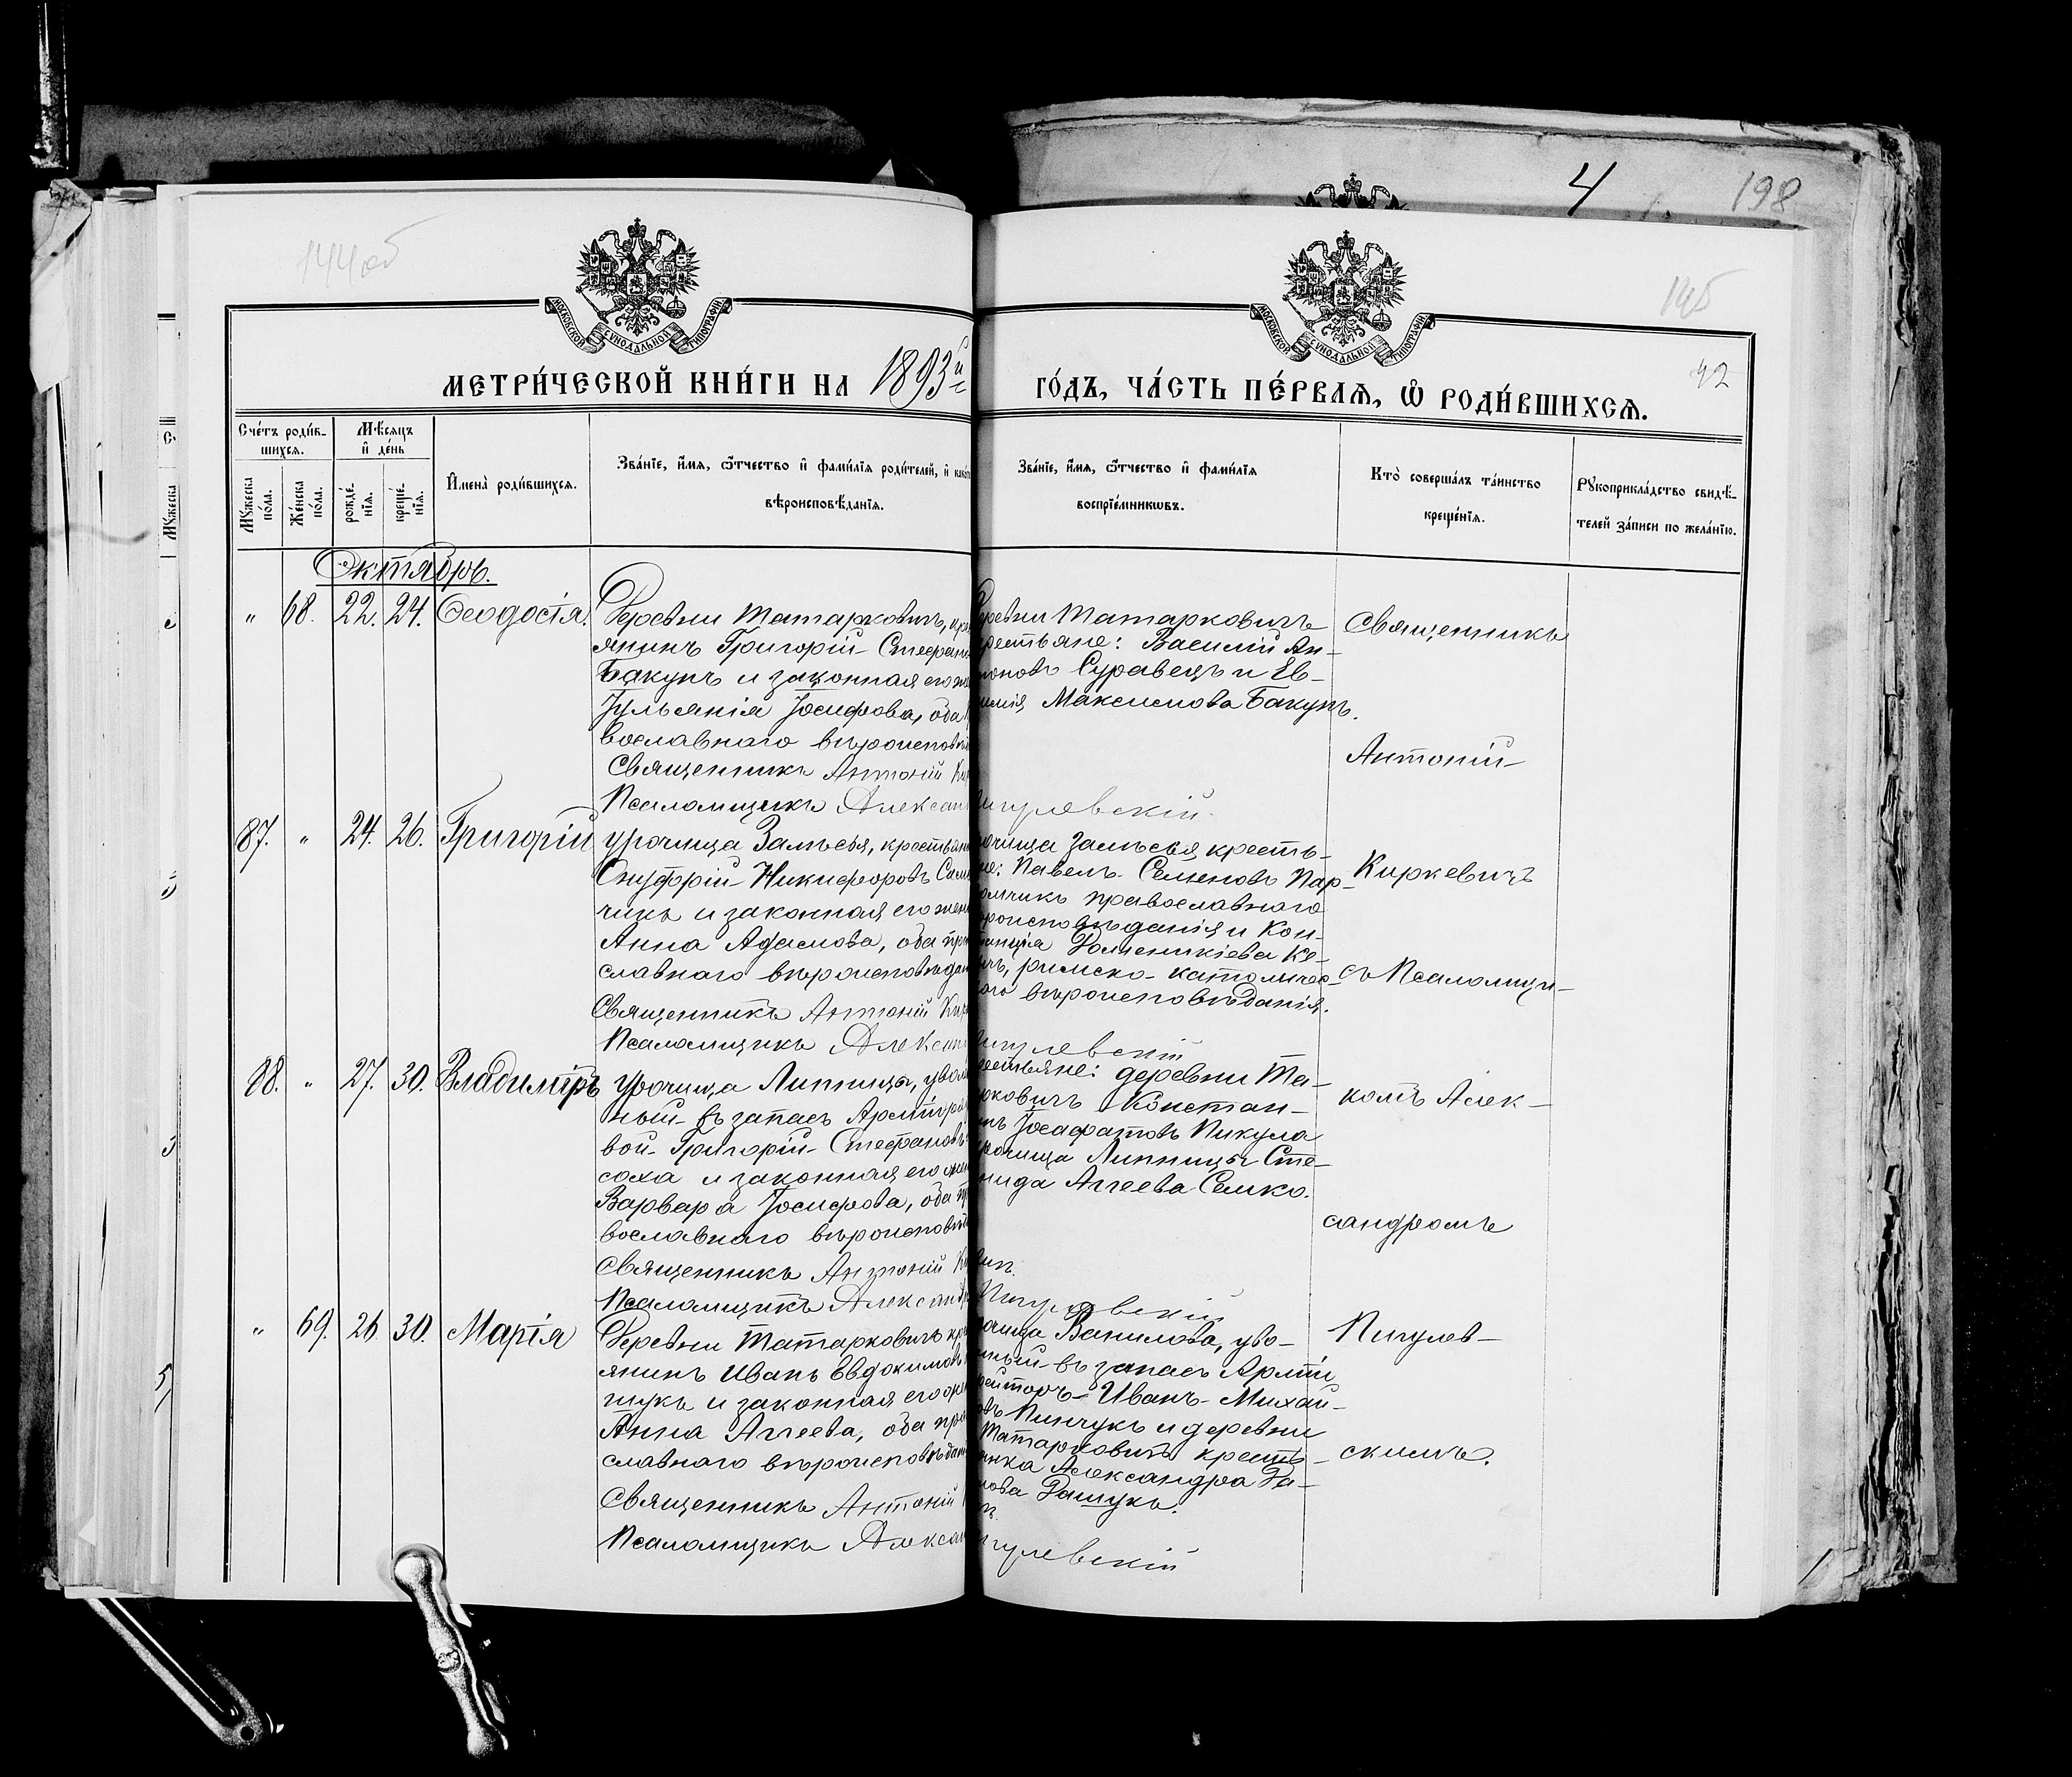 4
198
144об
145
42
МОСКОВСКОЙ СѴНОДАЛЬНОЙ ТИПОГРАФІИ
МОСКОВСКОЙ СѴНОДАЛЬНОЙ ТИПОГРАФІИ
МЕТРИ́ЧЕСКОЙ КНИ́ГИ НА 1893й
ГО́ДЪ, ЧА́СТЬ ПЕ́РВАѦ, Ѡ҆ РОДИ́ВШИХСѦ.
Сче́тъ роди́в-
шихся.
Мѣ́сяцъ
и҆ де́нь
Мꙋ́жеска
по́ла.
Же́нска
по́ла.
рожде́-
нїѧ.
креще́-
нїѧ.
И҆мена̀ роди́вшихсѧ.
Зва́нїе, и҆́мѧ, ѻ҆́тчество и҆ фами́лїѧ роди́телей, и҆ како́
вѣроисповѣ́данїѧ.
Зва́нїе, и҆́мѧ, ѻ҆́тчество и҆ фами́лїѧ
воспрїе́мникѡвъ.
Кто̀ соверша́лъ та́инство
креще́нїѧ.
Рꙋкоприкла́дство свидѣ́-
телей за́писи по жела́нїю.
Октябрь.
" 68. 22. 24. Ѳеодосія.
Деревни Татарковичъ, кре
янинъ Григорій Стефано
Бакунъ и законная его же
Іульянія Іосифова, оба
вославнаго вѣроисповѣ
Священникъ Антоній Кир
Псаломщикъ Алексан
еревни Татарковичъ
рестьяне: Василій Ан-
оновъ Суравецъ и Ев-
имія Максимова Бакунъ.
игулевскій
Священникъ
Антоній
87. " 24. 26. Григорій
урочища Залѣсья, крестьян
Онуфрій Никифоровъ Сам
чикъ и законная его жен
Анна Адамова, оба пра
славнаго вѣроисповѣдан
Священникъ Антоній Кир
Псаломщикъ Алексан
очища Залѣсья кресть-
не: Павелъ Семеновъ Пар-
омчикъ православнаго
роисповѣданія и Кон-
танція Доменикіева Ке-
ичъ, римско-католичес-
ого вѣроисповѣданія.
игулевскій
Киркевичъ
съ Псаломщи-
88. " 27. 30. Владиміръ
урочища Липницы, увол
ный въ запасъ Арміи ря
вой Григорій Стефановъ
соха и законная его же
Варвара Іосифова, оба пр
вославнаго вѣроисповѣд
Священникъ Антоній К
Псаломщикъ Александ
рестьяне: деревни Та-
рковичъ Констан-
нъ Іосафатовъ Пикула
рочища Липницы Сте-
нида Аггеева Семко.
Пигулевскій
комъ Алек-
сандромъ
" 69. 26. 30. Марія
Деревни Татарковичъ кре
янинъ Иванъ Евдокимовъ
щукъ и законная его же
Анна Аггеева, оба пра
славнаго вѣроисповѣдан
Священникъ Антоній
Псаломщикъ Алексан
очища Ванилова, уво-
нный въ запасъ Арміи
рейторъ Иванъ Михай-
овъ Пинчукъ и деревни
Татарковичъ кресть-
янка Александра Да-
нова Дашукъ.
игулевскій
Пигулев-
скимъ.